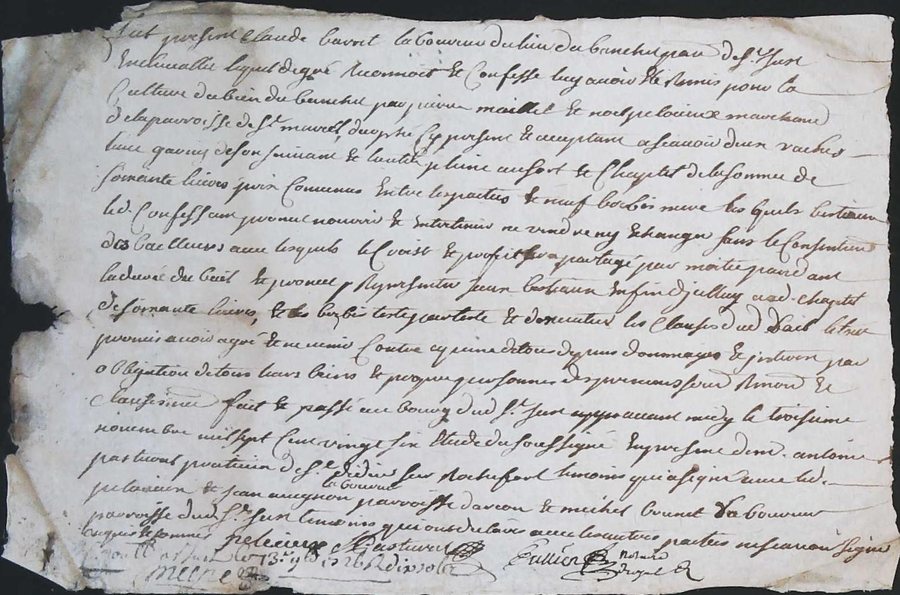 fut present Claude Barret laboureur du lieu du banchet parr. de St. Just
En chevallet lequel de gré Reconnoit & Confesse luy avoir été Remis pour la
Culture du bien du banchet par pierre maillet & noel pelicieux marchand
de la parroisse de St. marcel, durphé Cy present & acceptant a scavoir deux vaches
lune garnie de son suivant & l'autre pleine au fort & Cheptel de la somme de
soixante livres prix Convenus Entre les parties & neuf berbis mere les quels bestiaux
led. Confessant promet nourrir & Entretenir ne vendre ny Echanger sans le Consentem.
des bailleurs avec lesquels le Croist & profit sera partagé par moitié pendant
la durée du bail & promet Representer Iceux bestiaux Enfin d'iceluy aud. cheptel
de soixante livres, & les berbis teste par teste & d'executer les Clauses dud. bail le tout
promis avoir agré & ne venir Contre a peine de tous depens dommages & interest par
obligation de tous leurs biens & propres personnes
Clauses fait & passé au bourg dud. St. Just avant midy le troisieme
novembre mil sept Cent vingt six Etude du soussigné En presence de m. antoine
pasturel praticien de St. didier sur Rochefort temoins qui a signé avec led.
laboureur
pelicieux & Jean parroisse darcon & michel brunet laboureur
parroisse dud. St. Just temoins qui ont declaré avec les autres parties ne scavoir signer
Enquis & sommés pelicieux Pasturel
notaire
royal